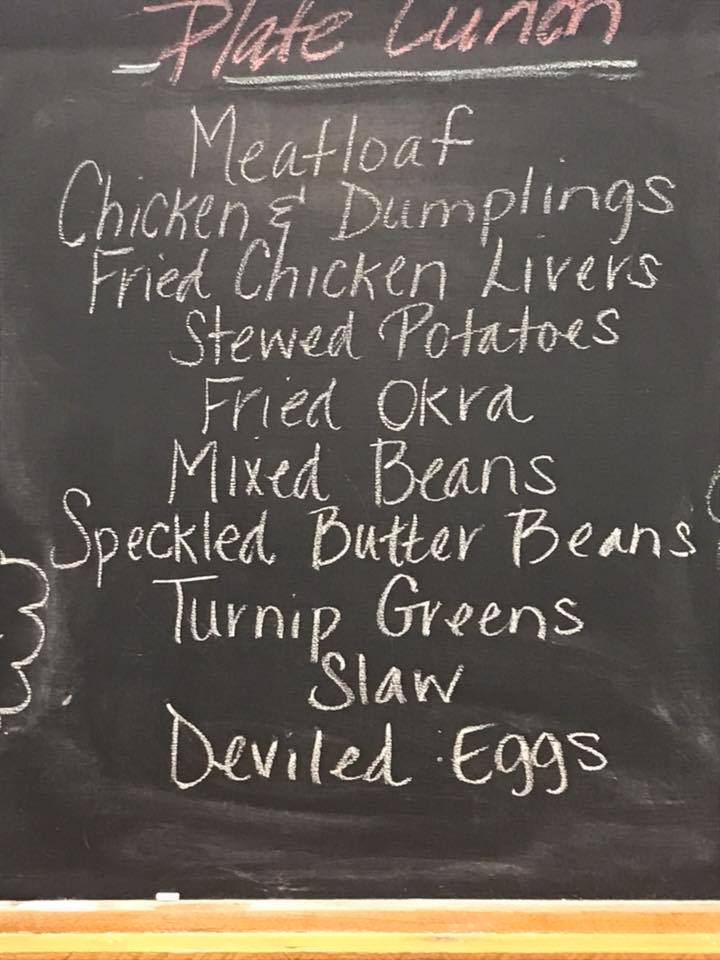 Plate Lunch
Meatloaf
Chicken & Dumplings
Fried Chicken Livers
Stewed Potatoes
Fried Okra
Mixed Beans
Speckled Butter Beans
Turnip Greens
Slaw
Deviled Eggs